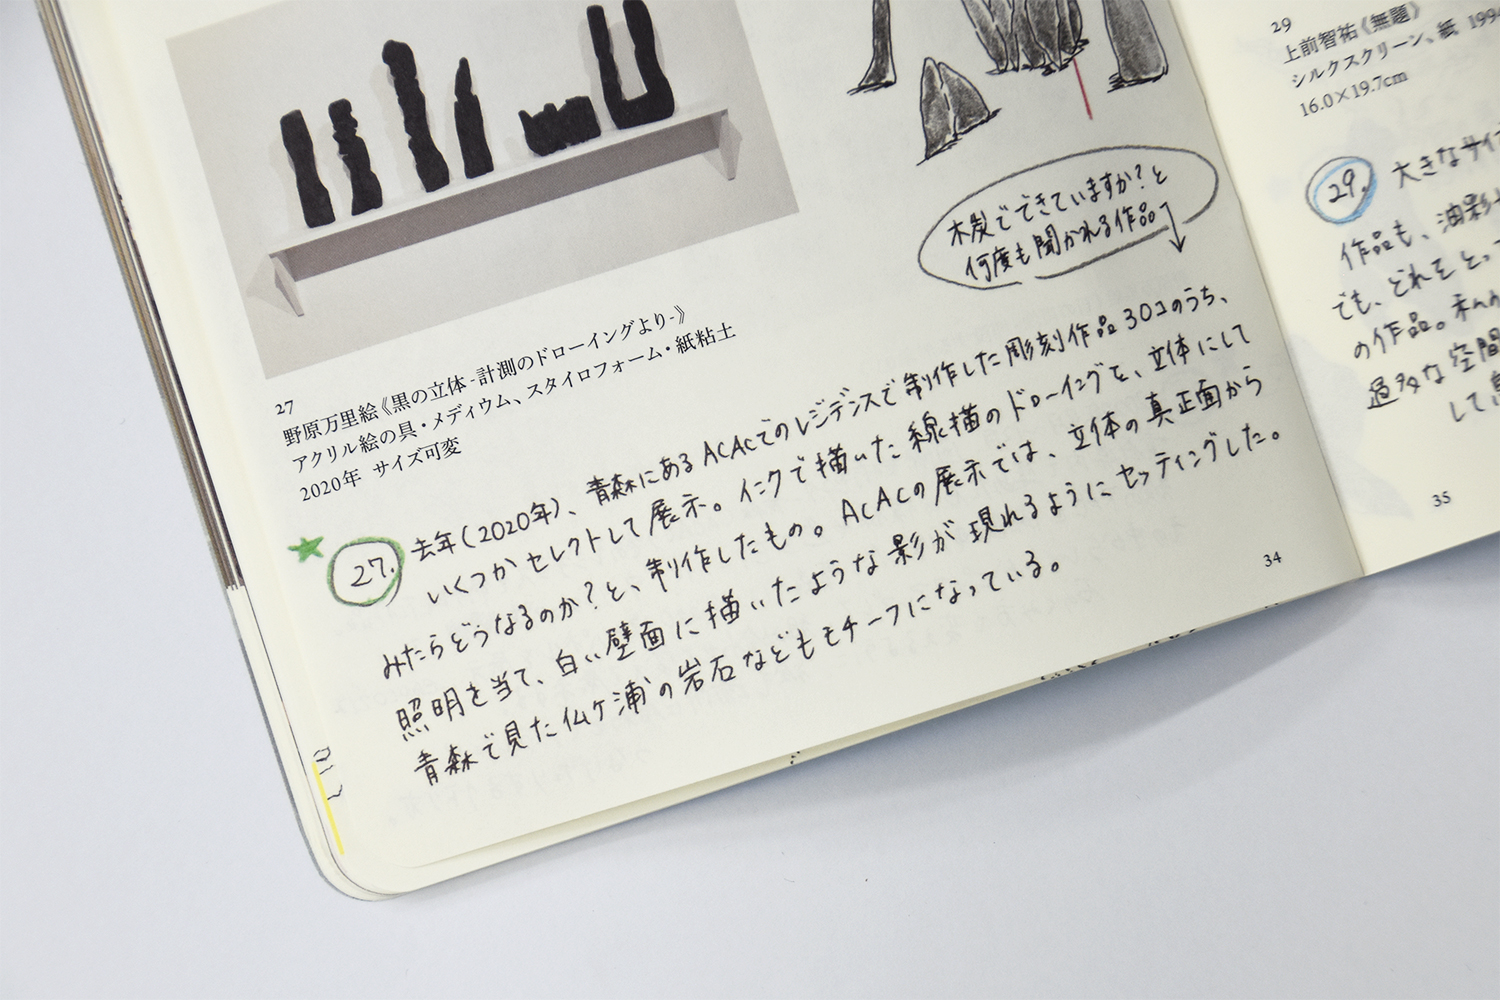 木製でできていますか？と
何度も聞かれる作品
27
野原万里絵《黒の立体 -計測のドローイングより-》
アクリル絵の具・メディウム、スタイロフォーム・紙粘土
2020年 サイズ可変
27. 去年(2020年)、青森にあるACACでのレジデンスで制作した彫刻作品30コのうち、
いくつかセレクトして展示。インクで描いた線描のドローイングを、立体にして
みたらどうなるのか？と、制作したもの。ACACの展示では、立体の真正面から
照明を当て、白い壁面に描いたような影が現れるようにセッティングした。
青森で見た仏ケ浦の岩石などもモチーフになっている。
34
29
上前智祐《無題》
シルクスクリーン、紙 199
16.0×19.7cm
29. 大きなサイ
作品も、油彩
でも、どれをとっ
の作品。
過多な空間
して
35